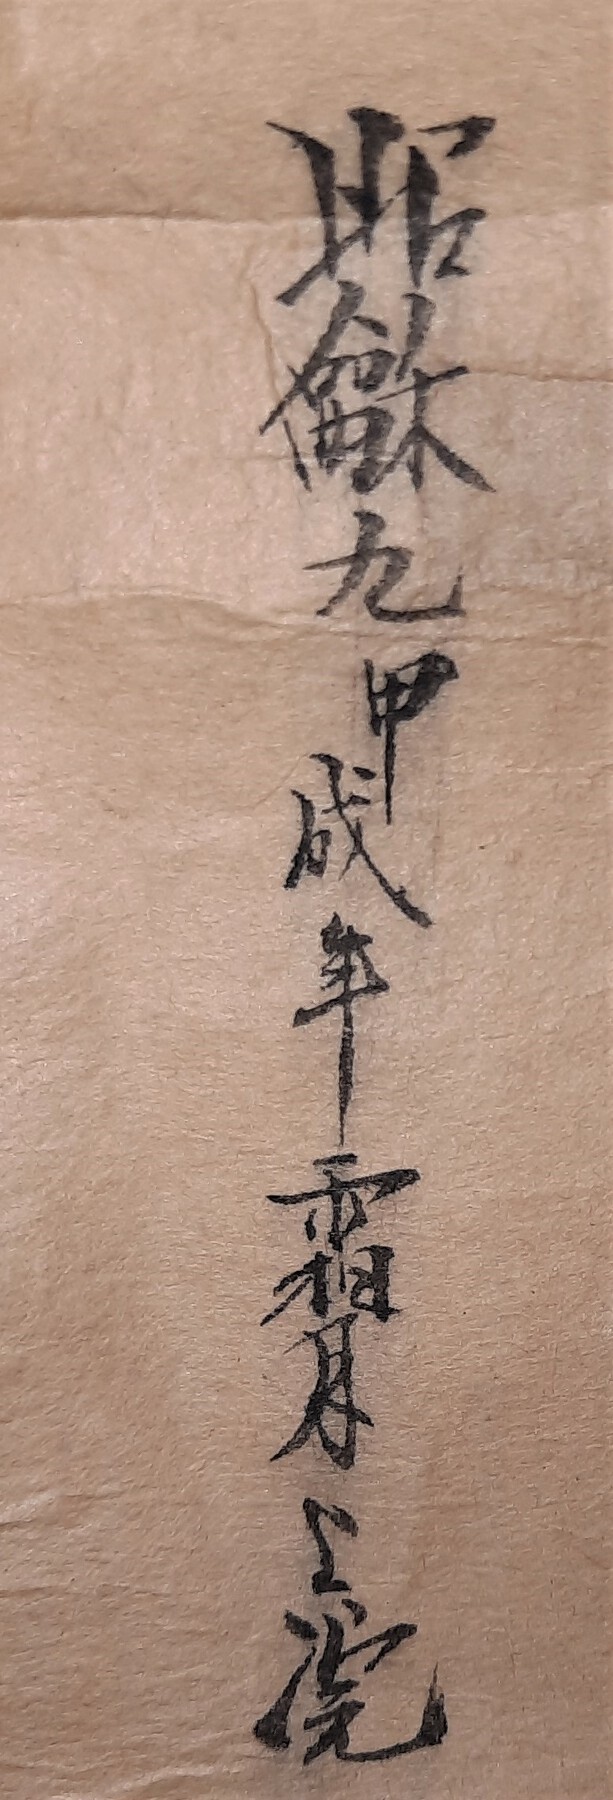 昭龢九甲戌年霜月上浣